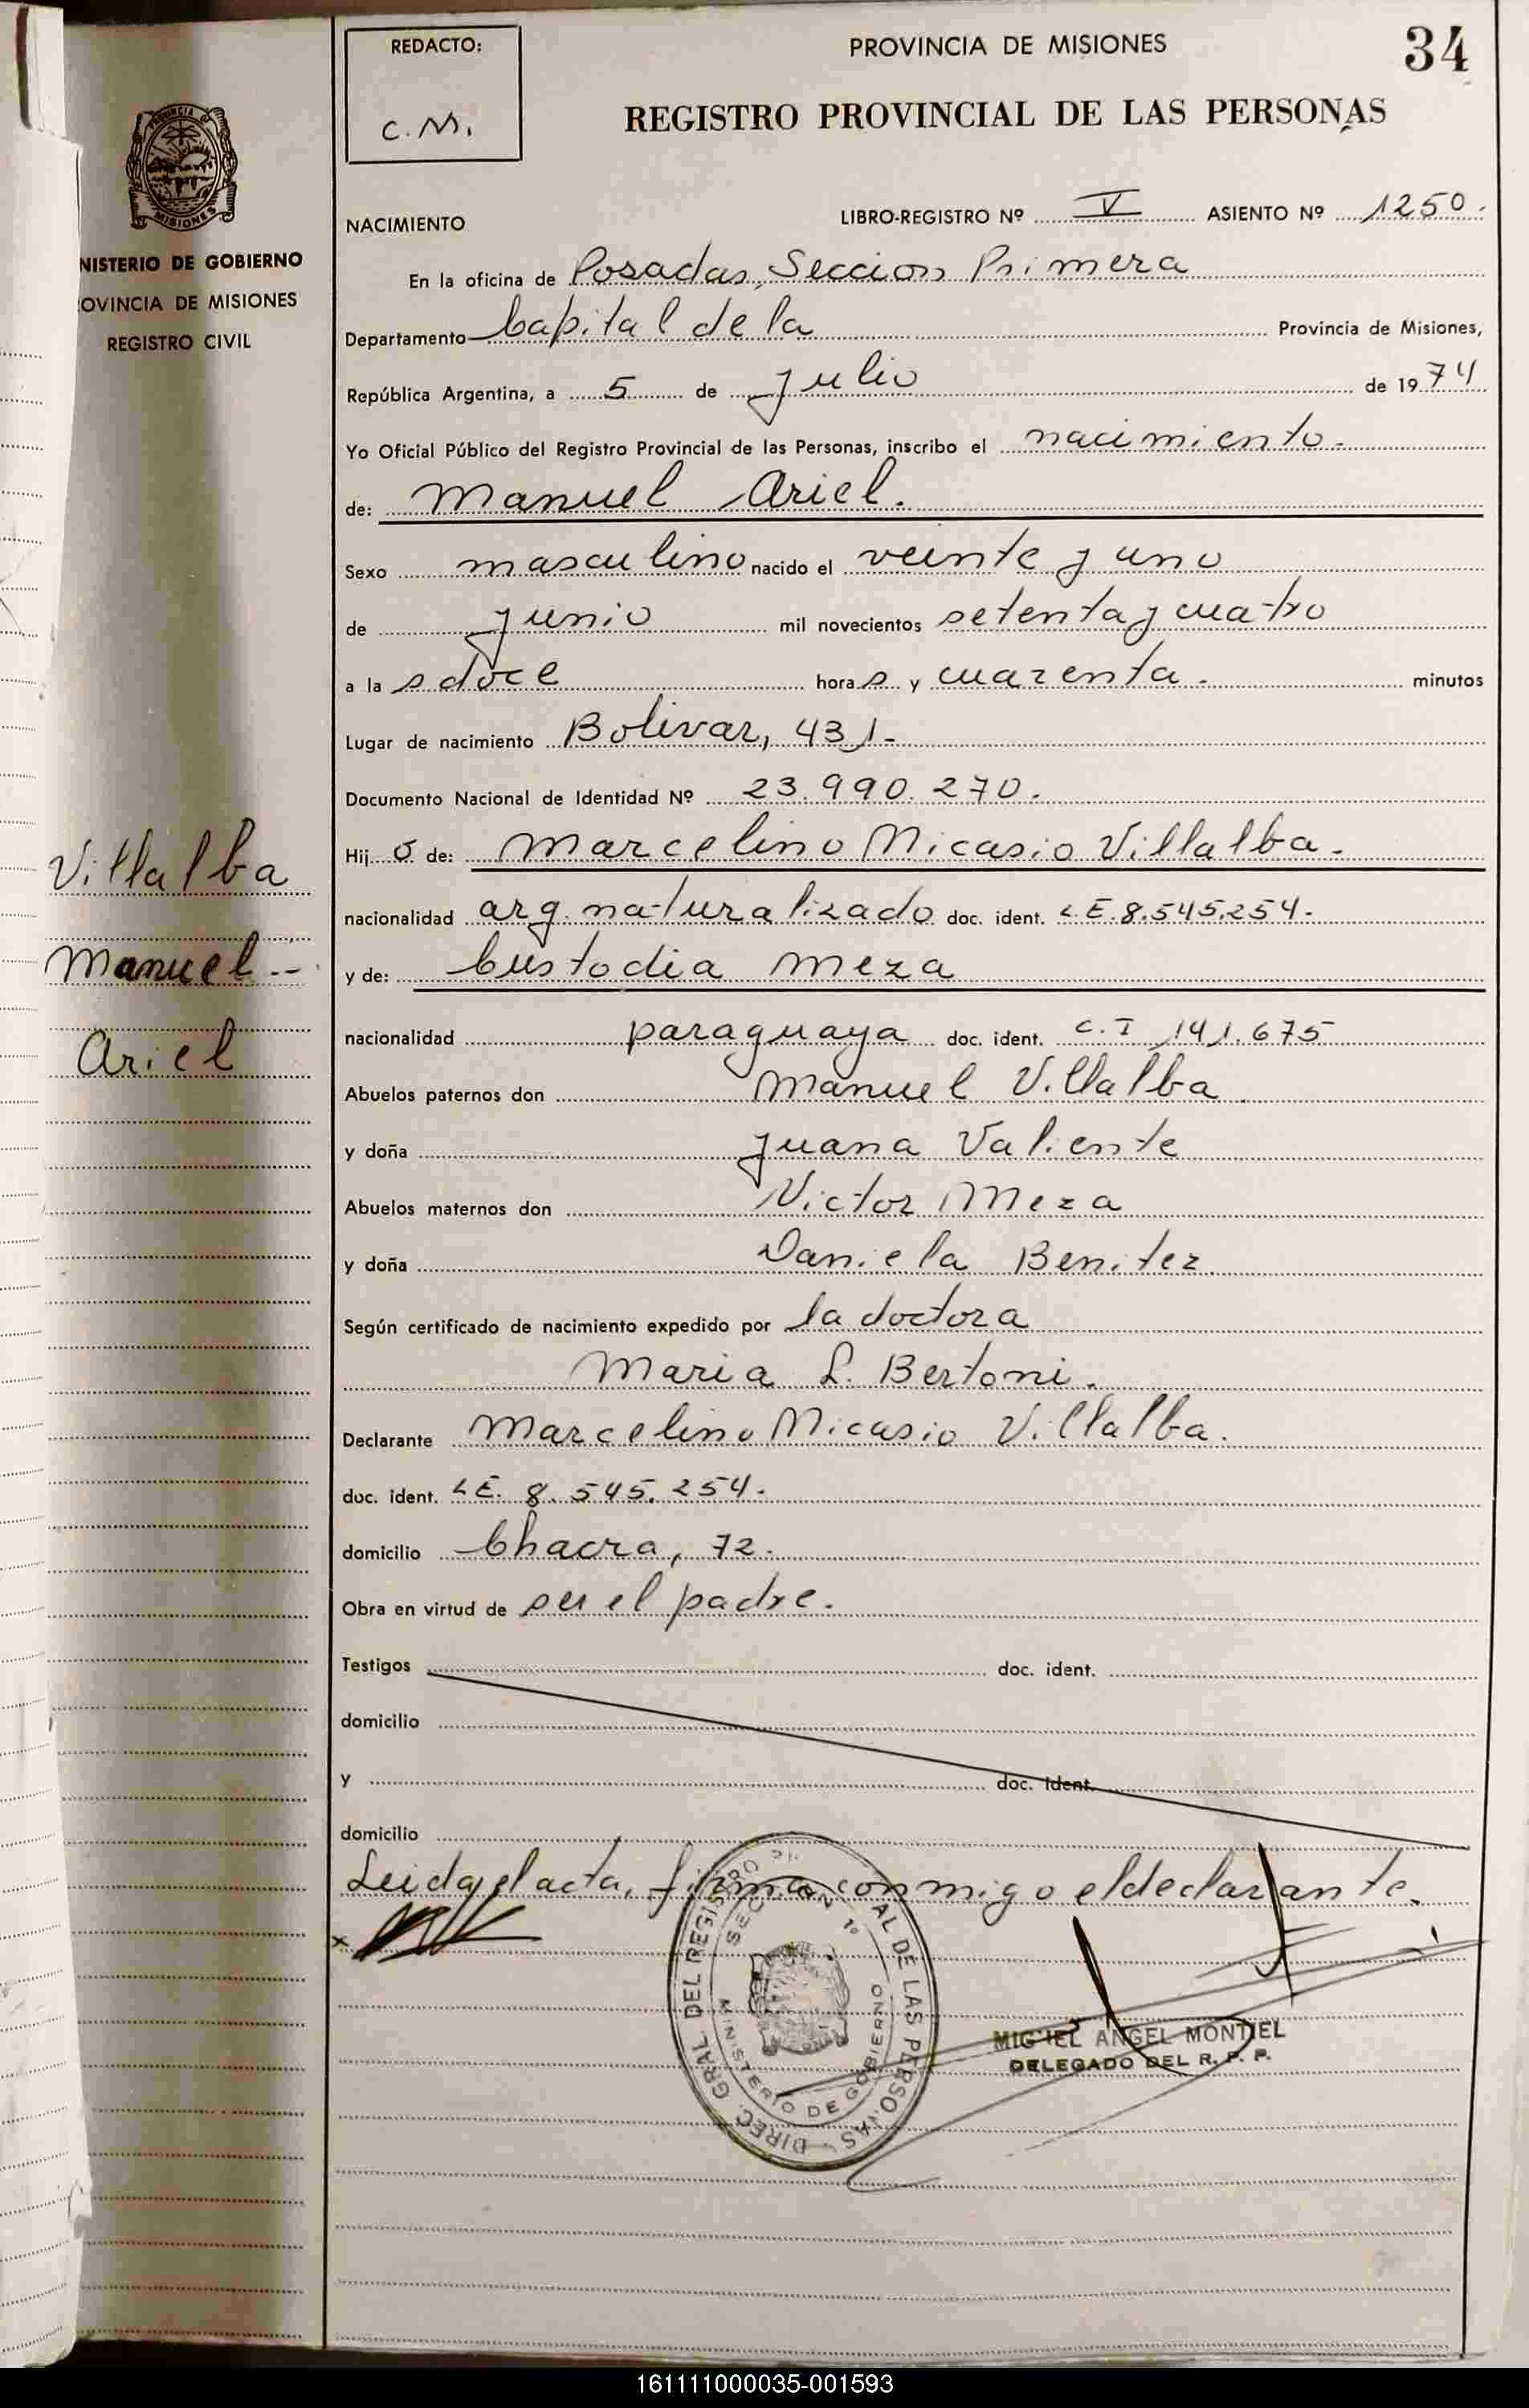 REDACTO:
C.M.
PROVINCIA DE MISIONES
34
REGISTRO PROVINCIAL DE LAS PERSONAS
MISIONES
NISTERIO DE GOBIERNO
OVINCIA DE MISIONES
REGISTRO CIVIL
NACIMIENTO
LIBRO-REGISTRO Nº V ASIENTO Nº 1250.
En la oficina de Posadas, Seccion Primera
Departamento Capital de la Provincia de Misiones,
República Argentina, a 5 de julio de 1974
Yo Oficial Público del Registro Provincial de las Personas, inscribo el nacimiento.
de: Manuel Ariel.
Sexo masculino nacido el veinte y uno
de junio mil novecientos setenta y cuatro
a las doce horas y cuarenta. minutos
Lugar de nacimiento Bolivar, 431-
Documento Nacional de Identidad Nº 23.990.270.
Hijo de: Marcelino Nicasio Villalba.
nacionalidad arg. naturalizado doc. ident. L.E. 8.545.254.
y de: Custodia Meza
nacionalidad paraguaya doc. ident. C.I 141.675
Abuelos paternos don Manuel Villalba
y doña Juana Valiente
Abuelos maternos don Victor Meza
y doña Daniela Benitez
Según certificado de nacimiento expedido por la doctora
Maria L. Bertoni.
Declarante Marcelino Nicasio Villalba.
doc. ident. L.E. 8.545.254.
domicilio Chacra, 72.
Obra en virtud de ser el padre.
Testigos doc. ident.
domicilio
y doc. ident.
domicilio
Leida el acta, firma conmigo el declarante.
Villalba
Manuel --
Ariel
DIREC. GRAL DEL REGISTRO AL DE LAS PERSONAS
SECCION 1º
MINISTERIO DE GOBIERNO
MIGUEL ANGEL MONTIEL
DELEGADO DEL R. P. P.
161111000035-001593